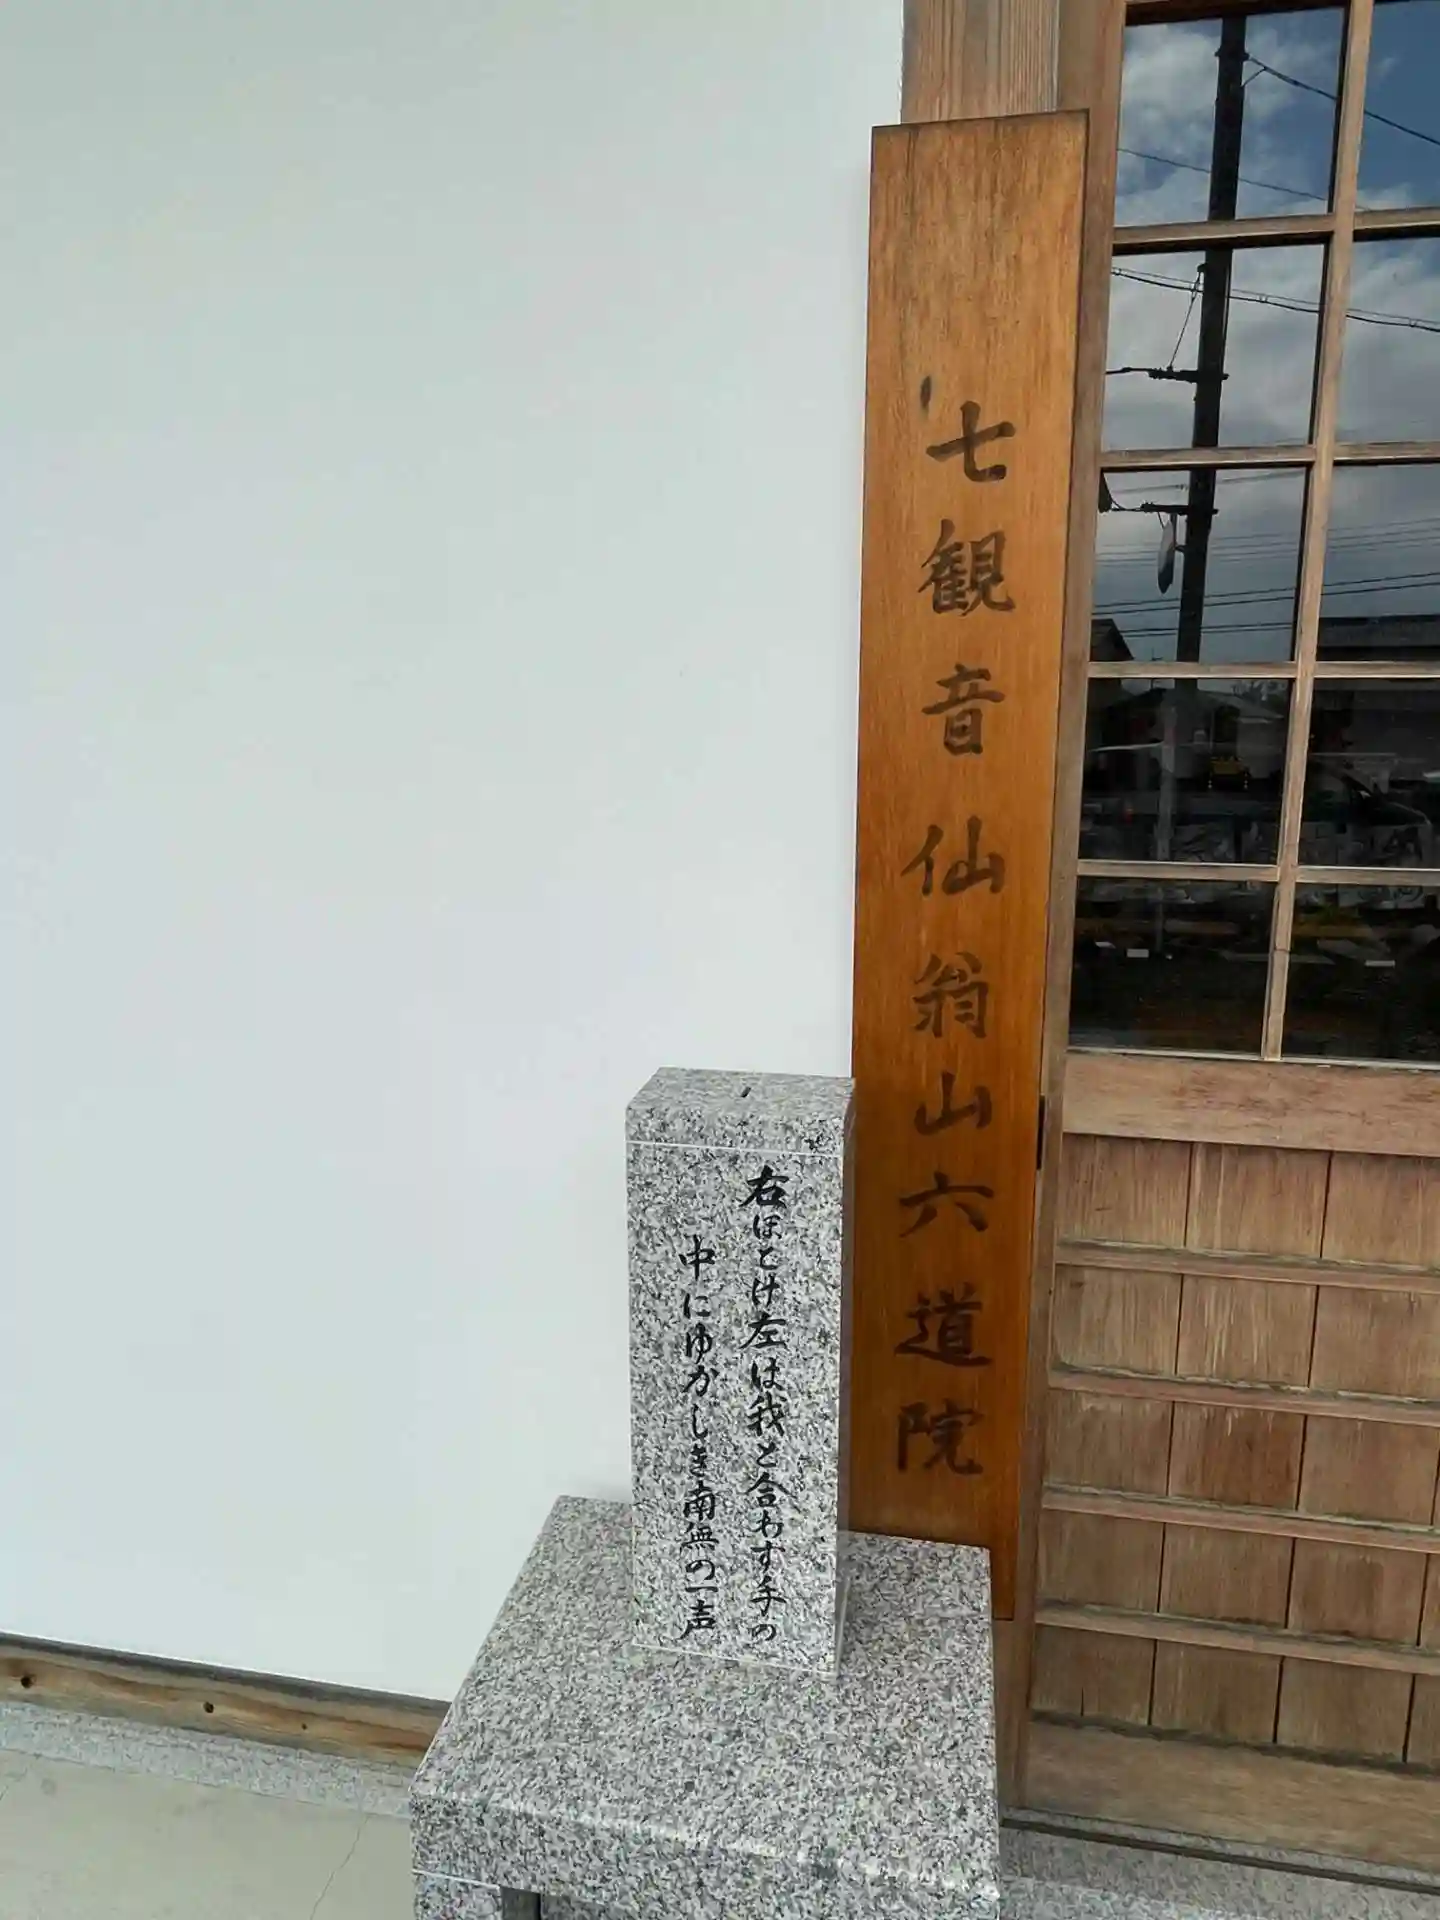 七観音仙翁山六道院
右ほとけ左は我と合わす手の
中にゆかしき南無の一声